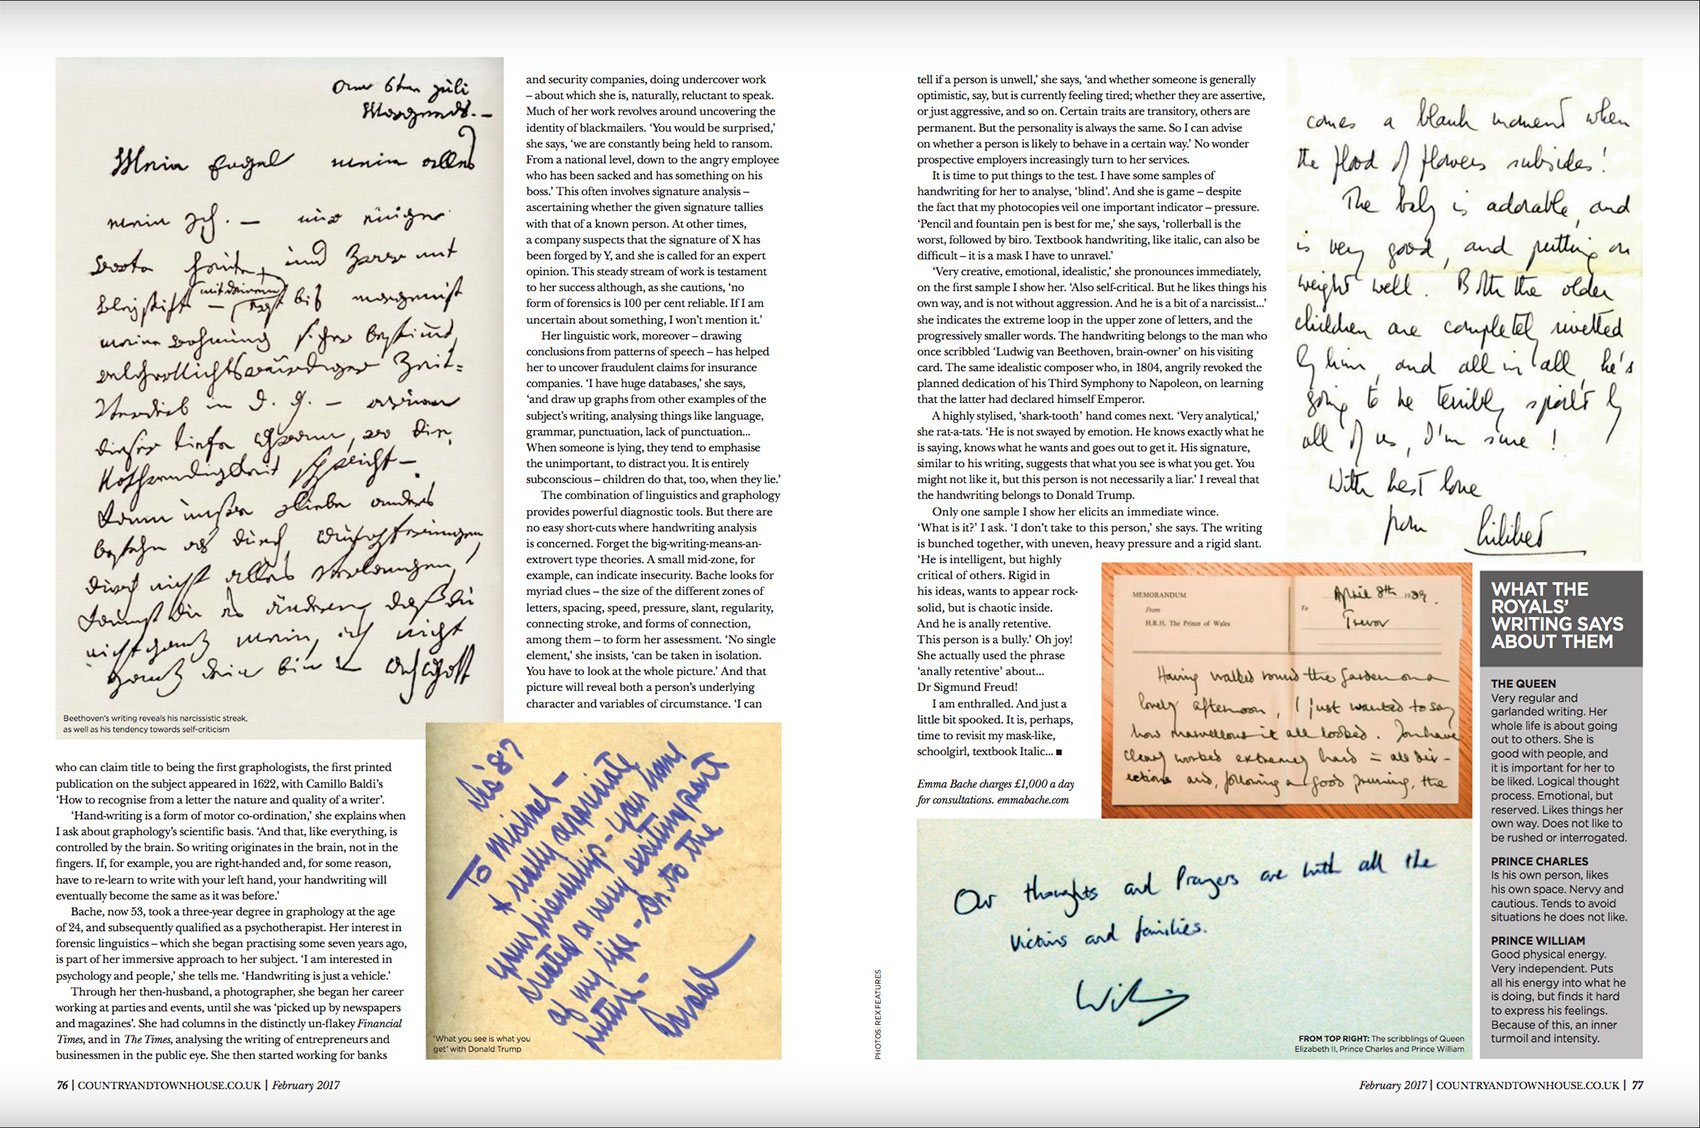 Mein Engel mein alles
mein Ich. –
Beethoven's writing reveals his narcissistic streak,
as well as his tendency towards self-criticism
who can claim title to being the first graphologists, the first printed
publication on the subject appeared in 1622, with Camillo Baldi's
'How to recognise from a letter the nature and quality of a writer'.
'Hand-writing is a form of motor co-ordination,' she explains when
I ask about graphology's scientific basis. 'And that, like everything, is
controlled by the brain. So writing originates in the brain, not in the
fingers. If, for example, you are right-handed and, for some reason,
have to re-learn to write with your left hand, your handwriting will
eventually become the same as it was before.'
Bache, now 53, took a three-year degree in graphology at the age
of 24, and subsequently qualified as a psychotherapist. Her interest in
forensic linguistics – which she began practising some seven years ago,
is part of her immersive approach to her subject. 'I am interested in
psychology and people,' she tells me. 'Handwriting is just a vehicle.'
Through her then-husband, a photographer, she began her career
working at parties and events, until she was 'picked up by newspapers
and magazines'. She had columns in the distinctly un-flakey Financial
Times, and in The Times, analysing the writing of entrepreneurs and
businessmen in the public eye. She then started working for banks
and security companies, doing undercover work
– about which she is, naturally, reluctant to speak.
Much of her work revolves around uncovering the
identity of blackmailers. 'You would be surprised,'
she says, 'we are constantly being held to ransom.
From a national level, down to the angry employee
who has been sacked and has something on his
boss.' This often involves signature analysis –
ascertaining whether the given signature tallies
with that of a known person. At other times,
a company suspects that the signature of X has
been forged by Y, and she is called for an expert
opinion. This steady stream of work is testament
to her success although, as she cautions, 'no
form of forensics is 100 per cent reliable. If I am
uncertain about something, I won't mention it.'
Her linguistic work, moreover – drawing
conclusions from patterns of speech – has helped
her to uncover fraudulent claims for insurance
companies. 'I have huge databases,' she says,
'and draw up graphs from other examples of the
subject's writing, analysing things like language,
grammar, punctuation, lack of punctuation...
When someone is lying, they tend to emphasise
the unimportant, to distract you. It is entirely
subconscious – children do that, too, when they lie.'
The combination of linguistics and graphology
provides powerful diagnostic tools. But there are
no easy short-cuts where handwriting analysis
is concerned. Forget the big-writing-means-an-
extrovert type theories. A small mid-zone, for
example, can indicate insecurity. Bache looks for
myriad clues – the size of the different zones of
letters, spacing, speed, pressure, slant, regularity,
connecting stroke, and forms of connection,
among them – to form her assessment. 'No single
element,' she insists, 'can be taken in isolation.
You have to look at the whole picture.' And that
picture will reveal both a person's underlying
character and variables of circumstance. 'I can
To Michael –
I really appreciate
your friendship – You have
created a very exciting part
of my life – On to the
future –
Donald
'What you see is what you
get' with Donald Trump
76 | COUNTRYANDTOWNHOUSE.CO.UK | February 2017
tell if a person is unwell,' she says, 'and whether someone is generally
optimistic, say, but is currently feeling tired; whether they are assertive,
or just aggressive, and so on. Certain traits are transitory, others are
permanent. But the personality is always the same. So I can advise
on whether a person is likely to behave in a certain way.' No wonder
prospective employers increasingly turn to her services.
It is time to put things to the test. I have some samples of
handwriting for her to analyse, 'blind'. And she is game – despite
the fact that my photocopies veil one important indicator – pressure.
'Pencil and fountain pen is best for me,' she says, 'rollerball is the
worst, followed by biro. Textbook handwriting, like italic, can also be
difficult – it is a mask I have to unravel.'
'Very creative, emotional, idealistic,' she pronounces immediately,
on the first sample I show her. 'Also self-critical. But he likes things his
own way, and is not without aggression. And he is a bit of a narcissist...'
she indicates the extreme loop in the upper zone of letters, and the
progressively smaller words. The handwriting belongs to the man who
once scribbled 'Ludwig van Beethoven, brain-owner' on his visiting
card. The same idealistic composer who, in 1804, angrily revoked the
planned dedication of his Third Symphony to Napoleon, on learning
that the latter had declared himself Emperor.
A highly stylised, 'shark-tooth' hand comes next. 'Very analytical,'
she rat-a-tats. 'He is not swayed by emotion. He knows exactly what he
is saying, knows what he wants and goes out to get it. His signature,
similar to his writing, suggests that what you see is what you get. You
might not like it, but this person is not necessarily a liar.' I reveal that
the handwriting belongs to Donald Trump.
Only one sample I show her elicits an immediate wince.
'What is it?' I ask. 'I don't take to this person,' she says. The writing
is bunched together, with uneven, heavy pressure and a rigid slant.
'He is intelligent, but highly
critical of others. Rigid in
his ideas, wants to appear rock-
solid, but is chaotic inside.
And he is anally retentive.
This person is a bully.' Oh joy!
She actually used the phrase
'anally retentive' about...
Dr Sigmund Freud!
I am enthralled. And just a
little bit spooked. It is, perhaps,
time to revisit my mask-like,
schoolgirl, textbook Italic... ■
Emma Bache charges £1,000 a day
for consultations. emmabache.com
comes a blank moment when
the flood of flowers subsides!
The baby is adorable, and
is very good, and putting on
weight well. Both the older
children are completely rivetted
by him, and all in all, he's
going to be terribly spoilt by
all of us, I'm sure!
With best love
from
Lilibet
MEMORANDUM
From
H.R.H. The Prince of Wales
To
April 8th 1989.
Trevor
Having walked round the garden on a
lovely afternoon, I just wanted to say
how marvellous it all looked. You have
clearly worked extremely hard in all dir-
ections and, following a good pruning, the
Our thoughts and Prayers are with all the
victims and families.
William
FROM TOP RIGHT: The scribblings of Queen
Elizabeth II, Prince Charles and Prince William
PHOTOS: REX FEATURES
WHAT THE
ROYALS'
WRITING SAYS
ABOUT THEM
THE QUEEN
Very regular and
garlanded writing. Her
whole life is about going
out to others. She is
good with people, and
it is important for her to
be liked. Logical thought
process. Emotional, but
reserved. Likes things her
own way. Does not like to
be rushed or interrogated.
PRINCE CHARLES
Is his own person, likes
his own space. Nervy and
cautious. Tends to avoid
situations he does not like.
PRINCE WILLIAM
Good physical energy.
Very independent. Puts
all his energy into what he
is doing, but finds it hard
to express his feelings.
Because of this, an inner
turmoil and intensity.
February 2017 | COUNTRYANDTOWNHOUSE.CO.UK | 77